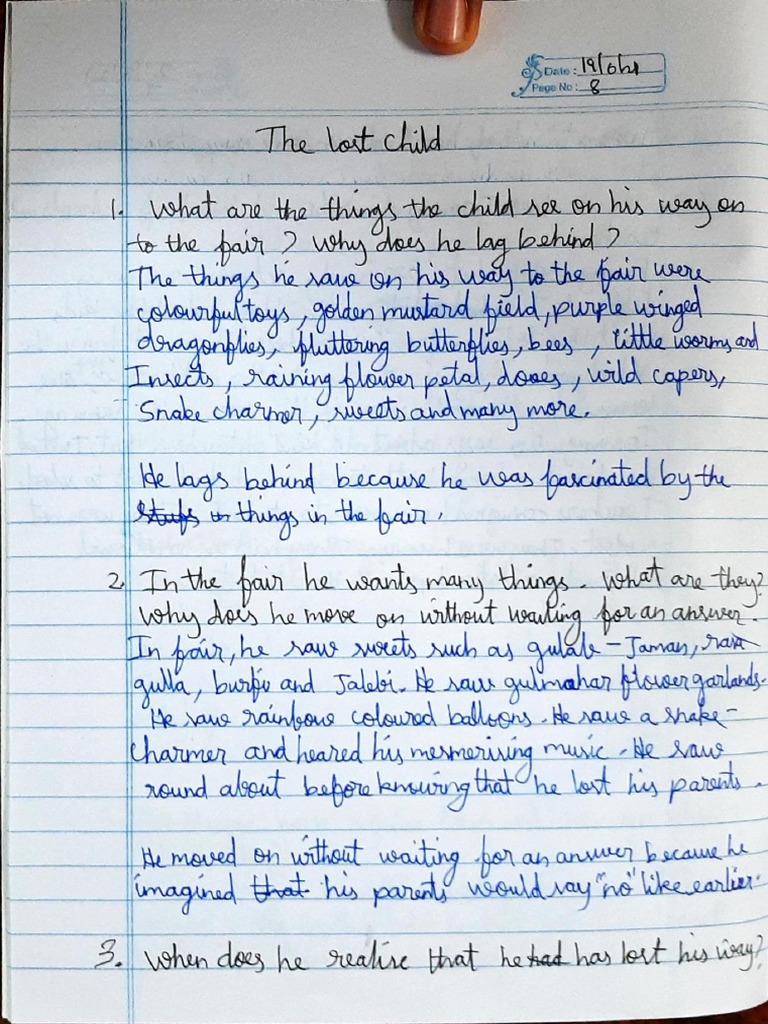 Date: 19/
Page No: 8
The lost child
1. What are the things the child see on his way on
to the fair? Why does he lag behind?
The things he saw on his way to the fair were
colourful toys, golden mustard field, purple winged
dragonflies, fluttering butterflies, bees, little worms and
Insects, raining flower petal, doves, wild capers,
Snake charmer, sweets and many more.
He lags behind because he was fascinated by the
things in the fair.
2. In the fair he wants many things. What are they?
Why does he move on without waiting for an answer.
In fair, he saw sweets such as gulab-Jaman, rasa
gulla, burfi and Jalebi. He saw gulmohar flower garlands.
He saw rainbow coloured balloons. He saw a snake-
charmer and heared his mesmerising music. He saw
round about before knowing that he lost his parents.
He moved on without waiting for an answer because he
imagined that his parents would say "no" like earlier.
3. When does he realise that he had has lost his way?